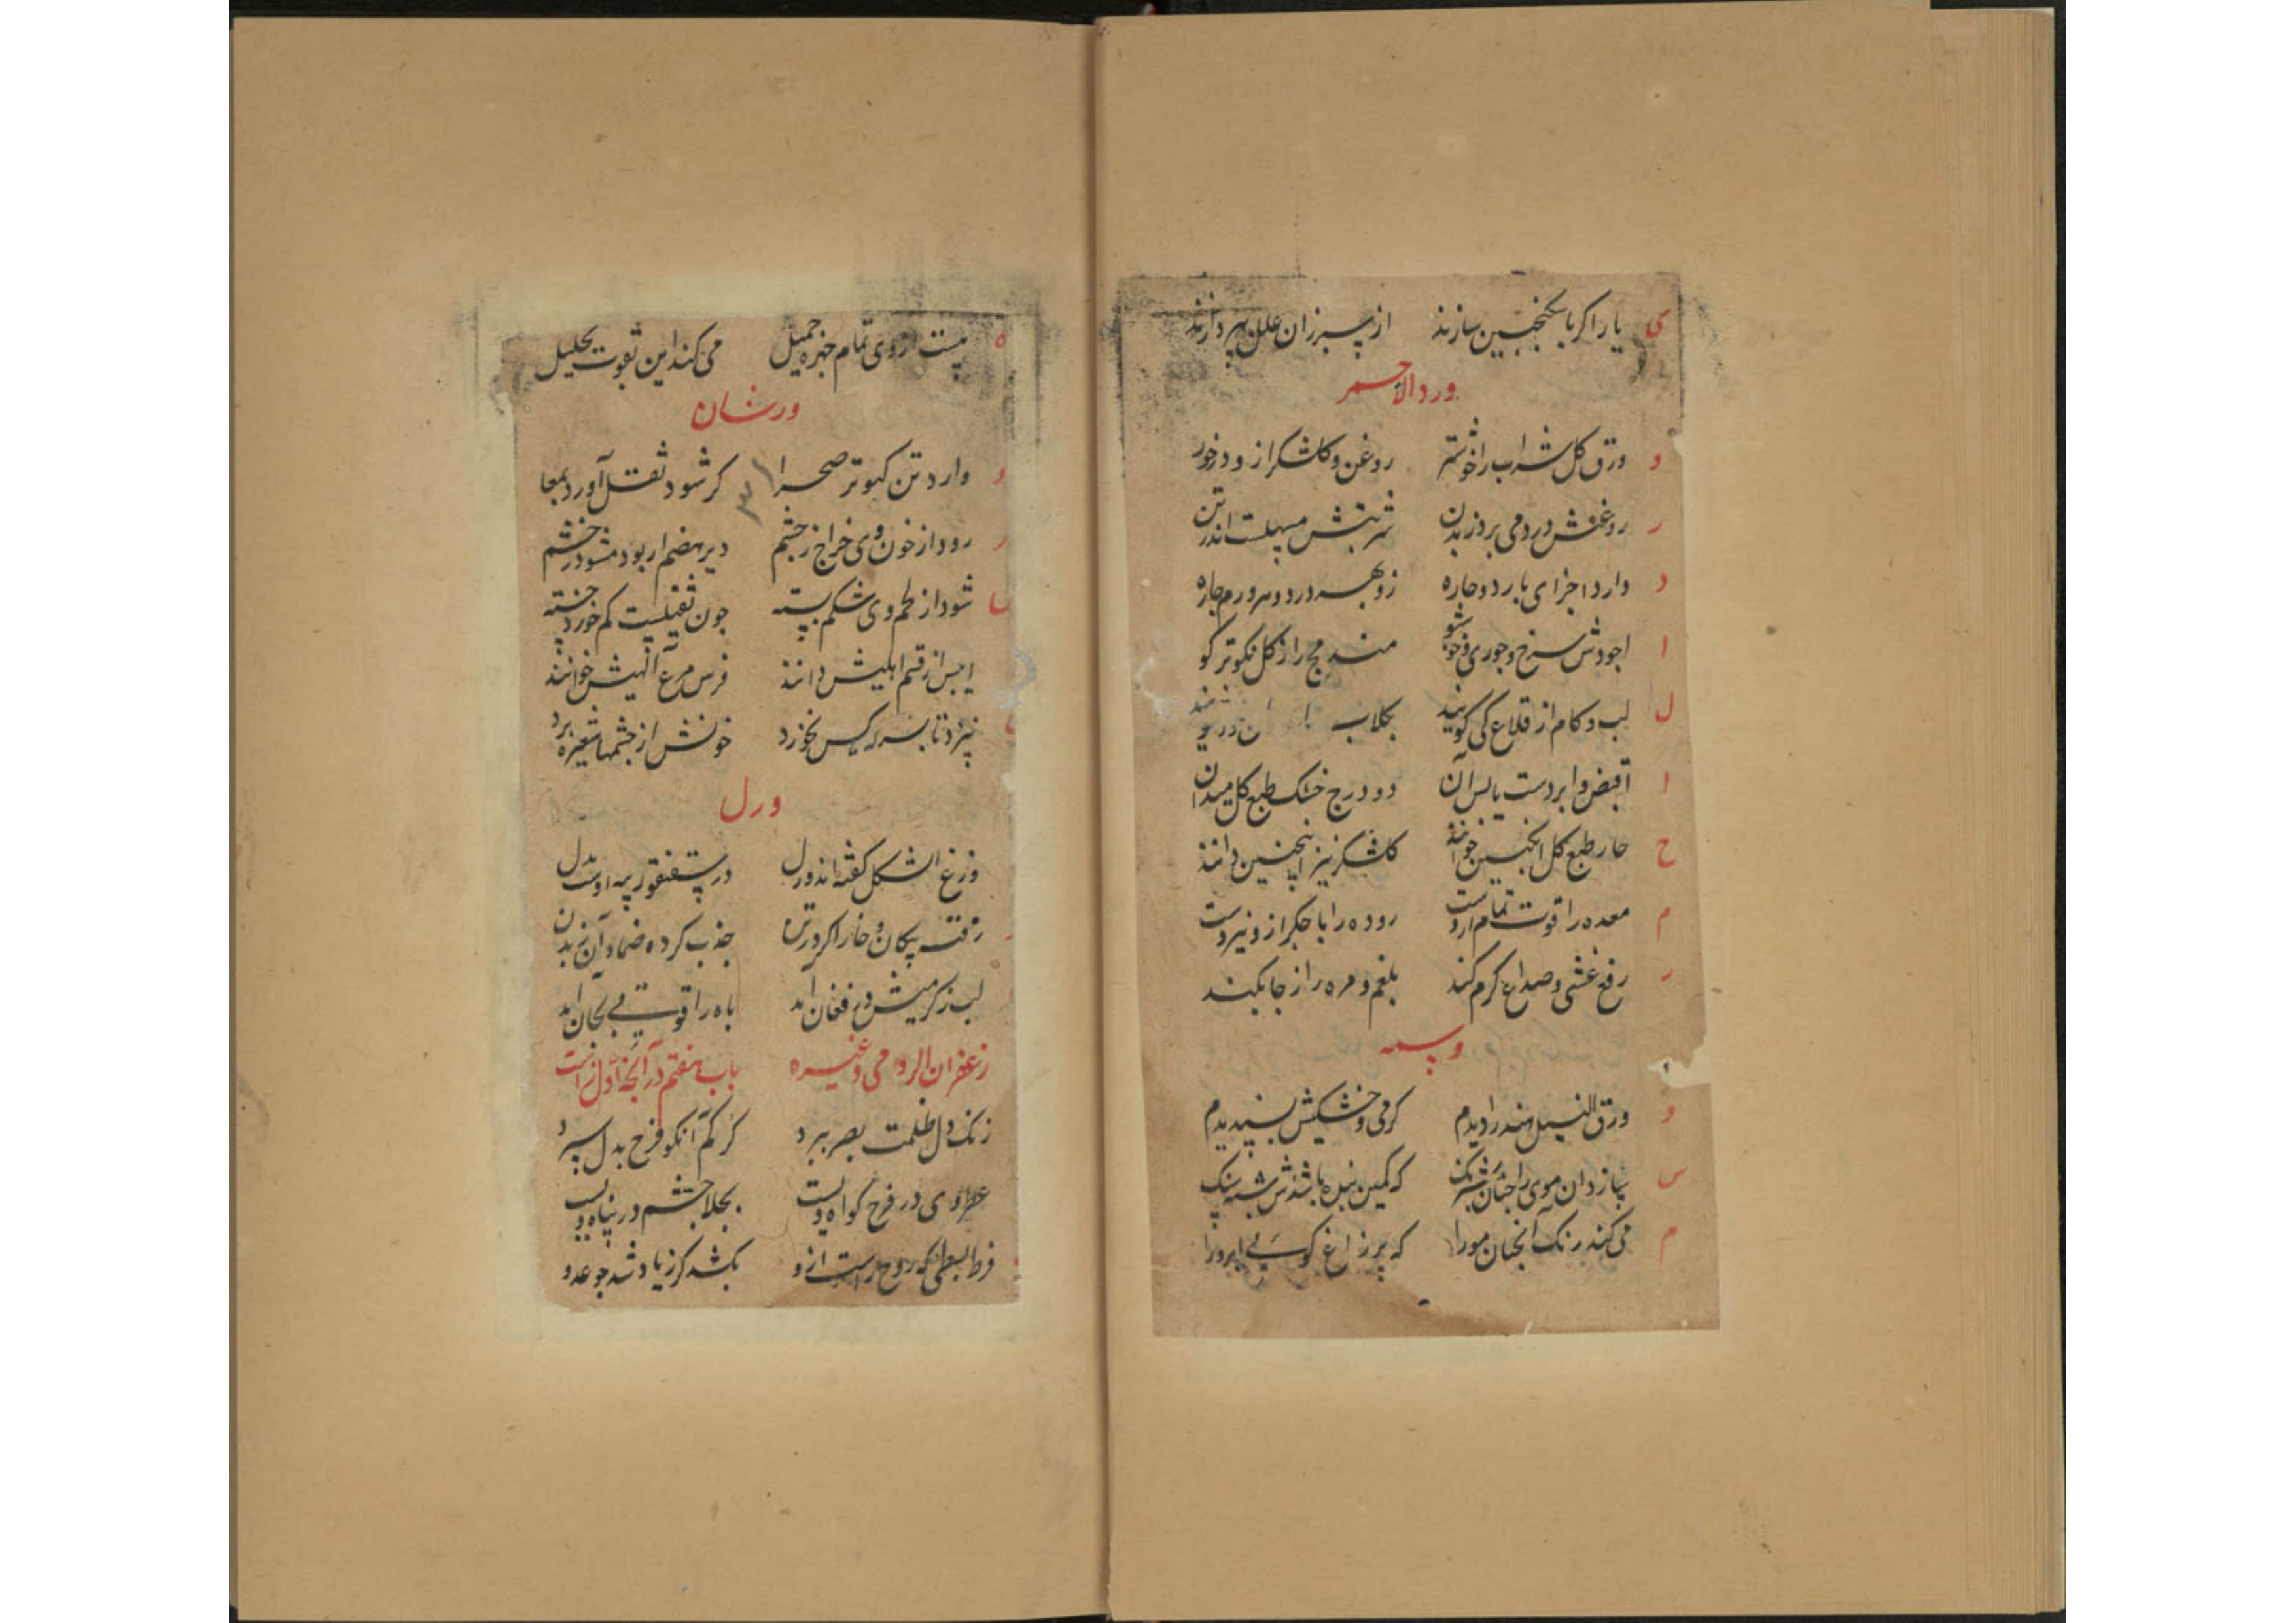 ی یا را اکر با سکنجبین سازند از سپرزان علل بپردازند
ورد الاحمر
و ورق کل شراب را خوشتر روغن و کلشکر ازو درخور
ر روغنش درد می برد ز بدن شربتش مسهلست اندر تن
د وارد اجزای بارد و حاره زو بهر درد و هر ورم چاره
ا اجودش سرخ و جوری و خوشبو مند مج را ز کل نکوتر کو
ل لب و کام از قلاع کی کویند بجلاب
ا اقبض و ابردست یابس آن دو درج خشک طبع کل میدان
ح حار طبع کل انکبین خوانند کلشکر نیز اینچنین دانند
م معده را قوت تمام اروست روده را با جکر ازو نیروست
ر رفع غشی و صداع کرم کند بلغم و مره را ز جا بکند
وسمه
و ورق النیل هند را دیدم کرمی و خشکیش پسندیدم
س سازد آن موی را چنان شبرنک که کمین بنده باشدش شبه رنک
م می کند رنک آنچنان مو را که پر زاغ کوسی ابرو را
ه هست از وی تمام چهره جمیل می کند این بقوت تحلیل
ورشان
و وارد تن کبوتر صحرا کر شود ثقل آورد بمعا
ر رود از خون وی خراج ز چشم دیر هضم ار بود مشو در خشم
شود از لحم وی شکم بسته چون ثقیلست کم خورد خسته
ایبس از قسم اهلیش دانند فرس مرغ الهیش خوانند
نپزد تا بسرکه کس نخورد خونش از چشمها شعیره برد
ورل
وزغ اشکل کفته‌اند ورل در سقنقور پیه اوست بدل
رفته پیکان و خار اکر در تن جذب کرده ضماد آن ز بدن
لب ز کرمیش در فغان آمد باه را قوتی بجان آمد
باب هفتم در آنچه اول زاست زعفران الرومی و غیره
زنک دل ظلمت بصر ببرد کرکم آنکو فرح بدل سپرد
عطر وی در فرح کواه ویست بجلا چشم در پناه ویست
فرط بسطی که روح راست ازو بکشد کر زیاد شد چو عدو